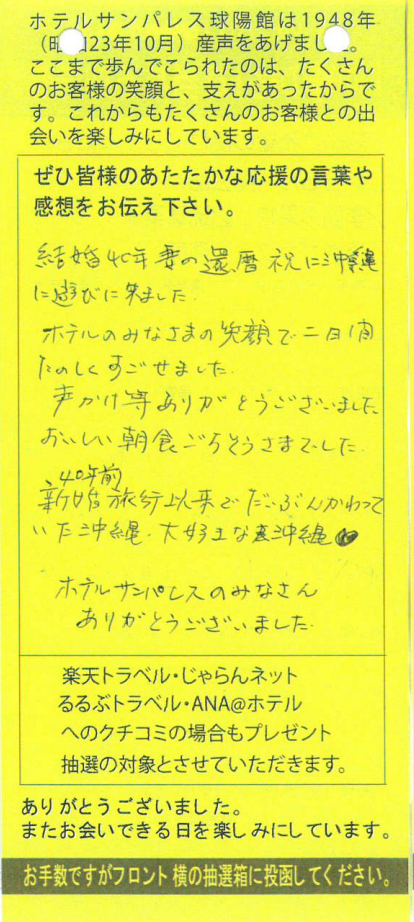 ホテルサンパレス球陽館は1948年
（昭和23年10月）産声をあげました。
ここまで歩んでこられたのは、たくさん
のお客様の笑顔と、支えがあったからで
す。これからもたくさんのお客様との出
会いを楽しみにしています。
ぜひ皆様のあたたかな応援の言葉や
感想をお伝え下さい。
結婚40年妻の還暦祝に沖縄
に遊びに来ました.
ホテルのみなさまの笑顔で二日間
たのしくすごせました.
声かけ等ありがとうございました
おいしい朝食ごちそうさまでした.
40年前
新婚旅行以来でだいぶんかわって
いた沖縄.大好きな沖縄
ホテルサンパレスのみなさん
ありがとうございました.
楽天トラベル・じゃらんネット
るるぶトラベル・ANA@ホテル
へのクチコミの場合もプレゼント
抽選の対象とさせていただきます。
ありがとうございました。
またお会いできる日を楽しみにしています。
お手数ですがフロント横の抽選箱に投函してください。